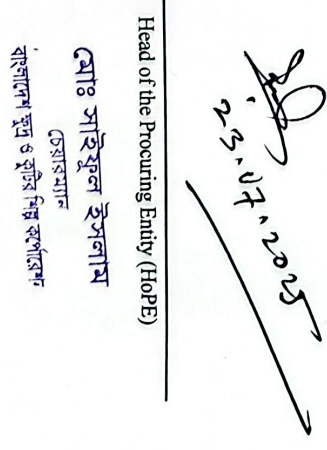 23.07.2025
Head of the Procuring Entity (HoPE)
মোঃ সাইফুল ইসলাম
চেয়ারম্যান
বাংলাদেশ ক্ষুদ্র ও কুটির শিল্প কর্পোরেশন